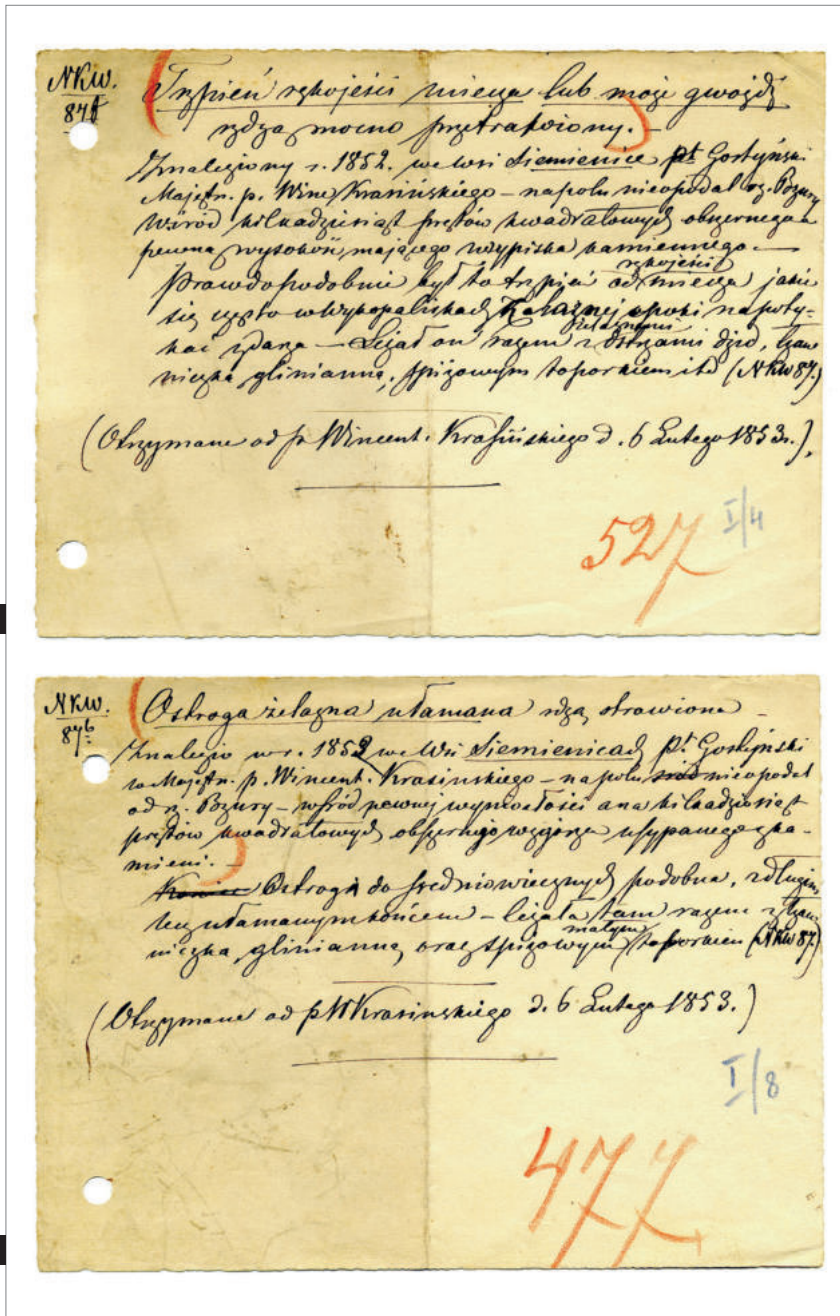 NKW.
87
Trzpień rękojeści miecza lub może gwoźdź
rdzą mocno przetrawiony. –
Znaleziony r. 1852. we wsi Siemienice pt Gostyński
Majętn. p. Winc. Krasińskiego – na polu nieopodal rz. Bzury
Wśród kilkadziesiąt prętów kwadratowych obszernego a
pewną wysokość mającego usypiska kamiennego. –
Prawdopodobnie był to trzpień od rękojeści miecza jakie
się często w wykopaliskach żelaznej epoki napoty-
kać zdarza – Leżał on razem z żelaznymi ostrzami dzid, łzaw
niczką glinianną, spiżowym toporkiem itd (NKW 87.)
(Otrzymane od p Wincent. Krasińskiego d. 6 Lutego 1853r.).
527 I/4
NKW.
87b
Ostroga żelazna ułamana rdzą strawiona –
Znalezio w r. 1852 we Wsi Siemienicach pt Gostyński
w Majętn. p. Wincent. Krasinskiego – na polu nieopodal
od rz. Bzury – wśród pewnej wyniosłości a na kilkadziesiąt
prętów kwadratowych obszernego wzgórza usypanego z ka-
mieni. –
Koniec Ostroga do średniowiecznych podobna, z długim,
lecz ułamanym końcem – leżała tam razem z łzaw
niczką glinianną oraz spiżowym małym toporkiem (NKW 87.)
(Otrzymane od p W Krasinskiego d. 6 Lutego 1853.)
I/8
477